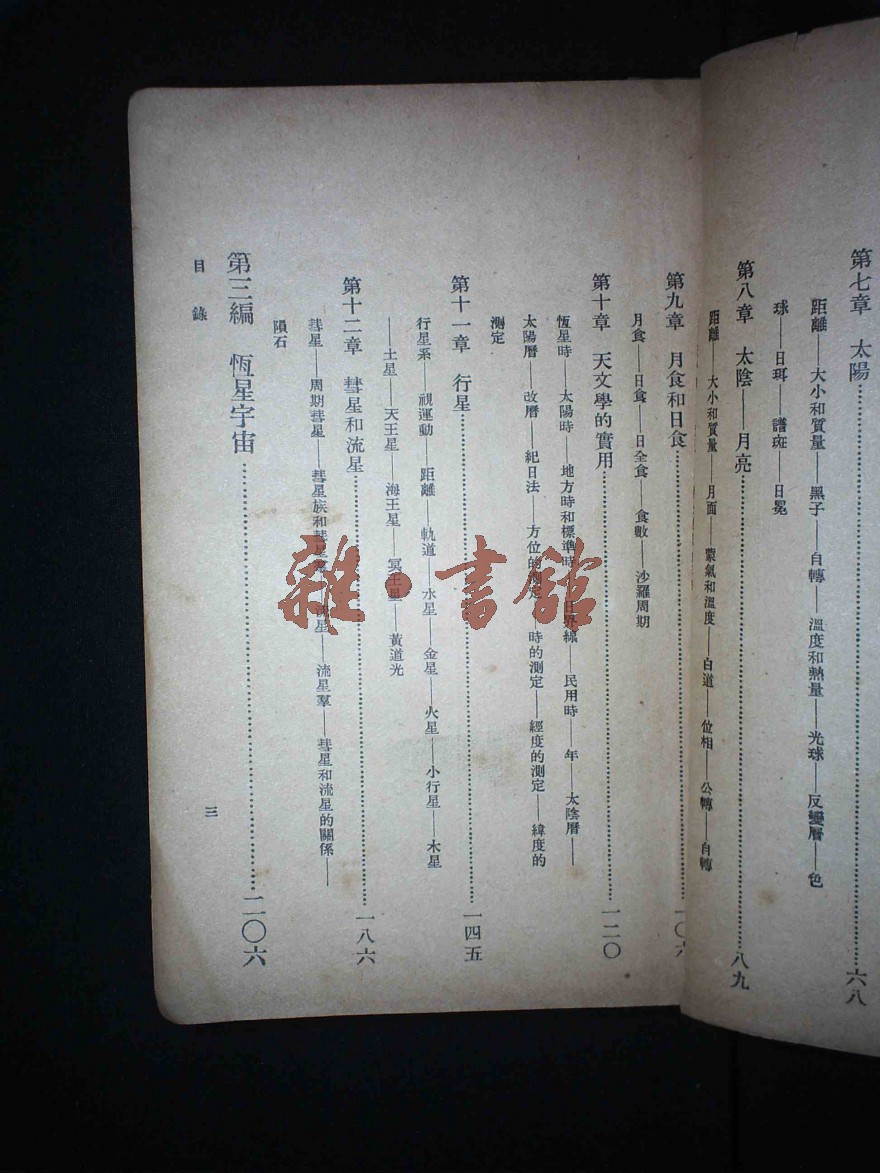 第七章 太陽……六八
距離——大小和質量——黑子——自轉——溫度和熱量——光球——反變層——色
球——日珥——譜斑——日冕
第八章 太陰——月亮……八九
距離——大小和質量——月面——蒙氣和溫度——白道——位相——公轉——自轉
第九章 月食和日食……一〇六
月食——日食——日全食——食數——沙羅周期
第十章 天文學的實用……一二〇
恆星時——太陽時——地方時和標準時——日界線——民用時——年——太陰曆——
太陽曆——改曆——紀日法——方位的測定——時的測定——經度的測定——緯度的
測定
第十一章 行星……一四五
行星系——視運動——距離——軌道——水星——金星——火星——小行星——木星
——土星——天王星——海王星——冥王星——黃道光
第十二章 彗星和流星……一八六
彗星——周期彗星——彗星族和彗星羣——流星——流星羣——彗星和流星的關係——
隕石
第三編 恆星宇宙……二〇六
目錄
三
雜·書館